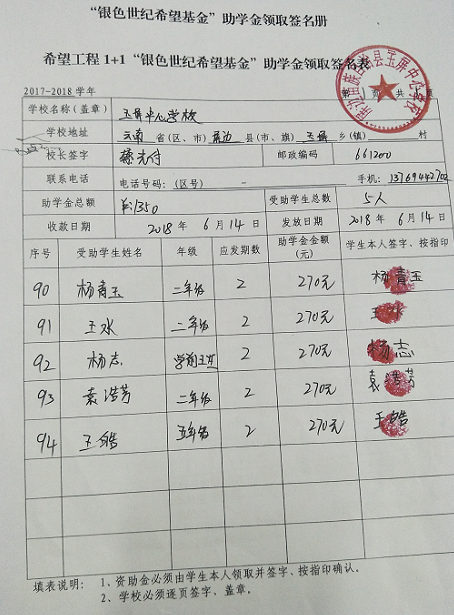 “银色世纪希望基金”助学金领取签名册
希望工程 1+1“银色世纪希望基金”助学金领取签名表
2017-2018 学年
学校名称（盖章） 玉屏中心学校
学校地址 云南 省（区、市） 屏边 县（市、旗） 玉屏 乡（镇） 村
校长签字 邮政编码 661200
联系电话 电话号码：（区号） - 手机：
助学金总额 ¥1350 受助学生总数 5人
收款日期 2018 年 6 月 14 日 发放日期 2018 年 6 月 14 日
序号 受助学生姓名 年级 应发期数 助学金金额（元） 学生本人签字、按指印
90 杨青玉 二年级 2 270元 杨青玉
91 王水 二年级 2 270元 王水
92 杨志 2 270元 杨志
93 袁浩芳 二年级 2 270元 袁浩芳
94 王皓 五年级 2 270元 王皓
填表说明： 1、资助金必须由学生本人领取并签字、按指印确认。
2、学校必须逐页签字、盖章。